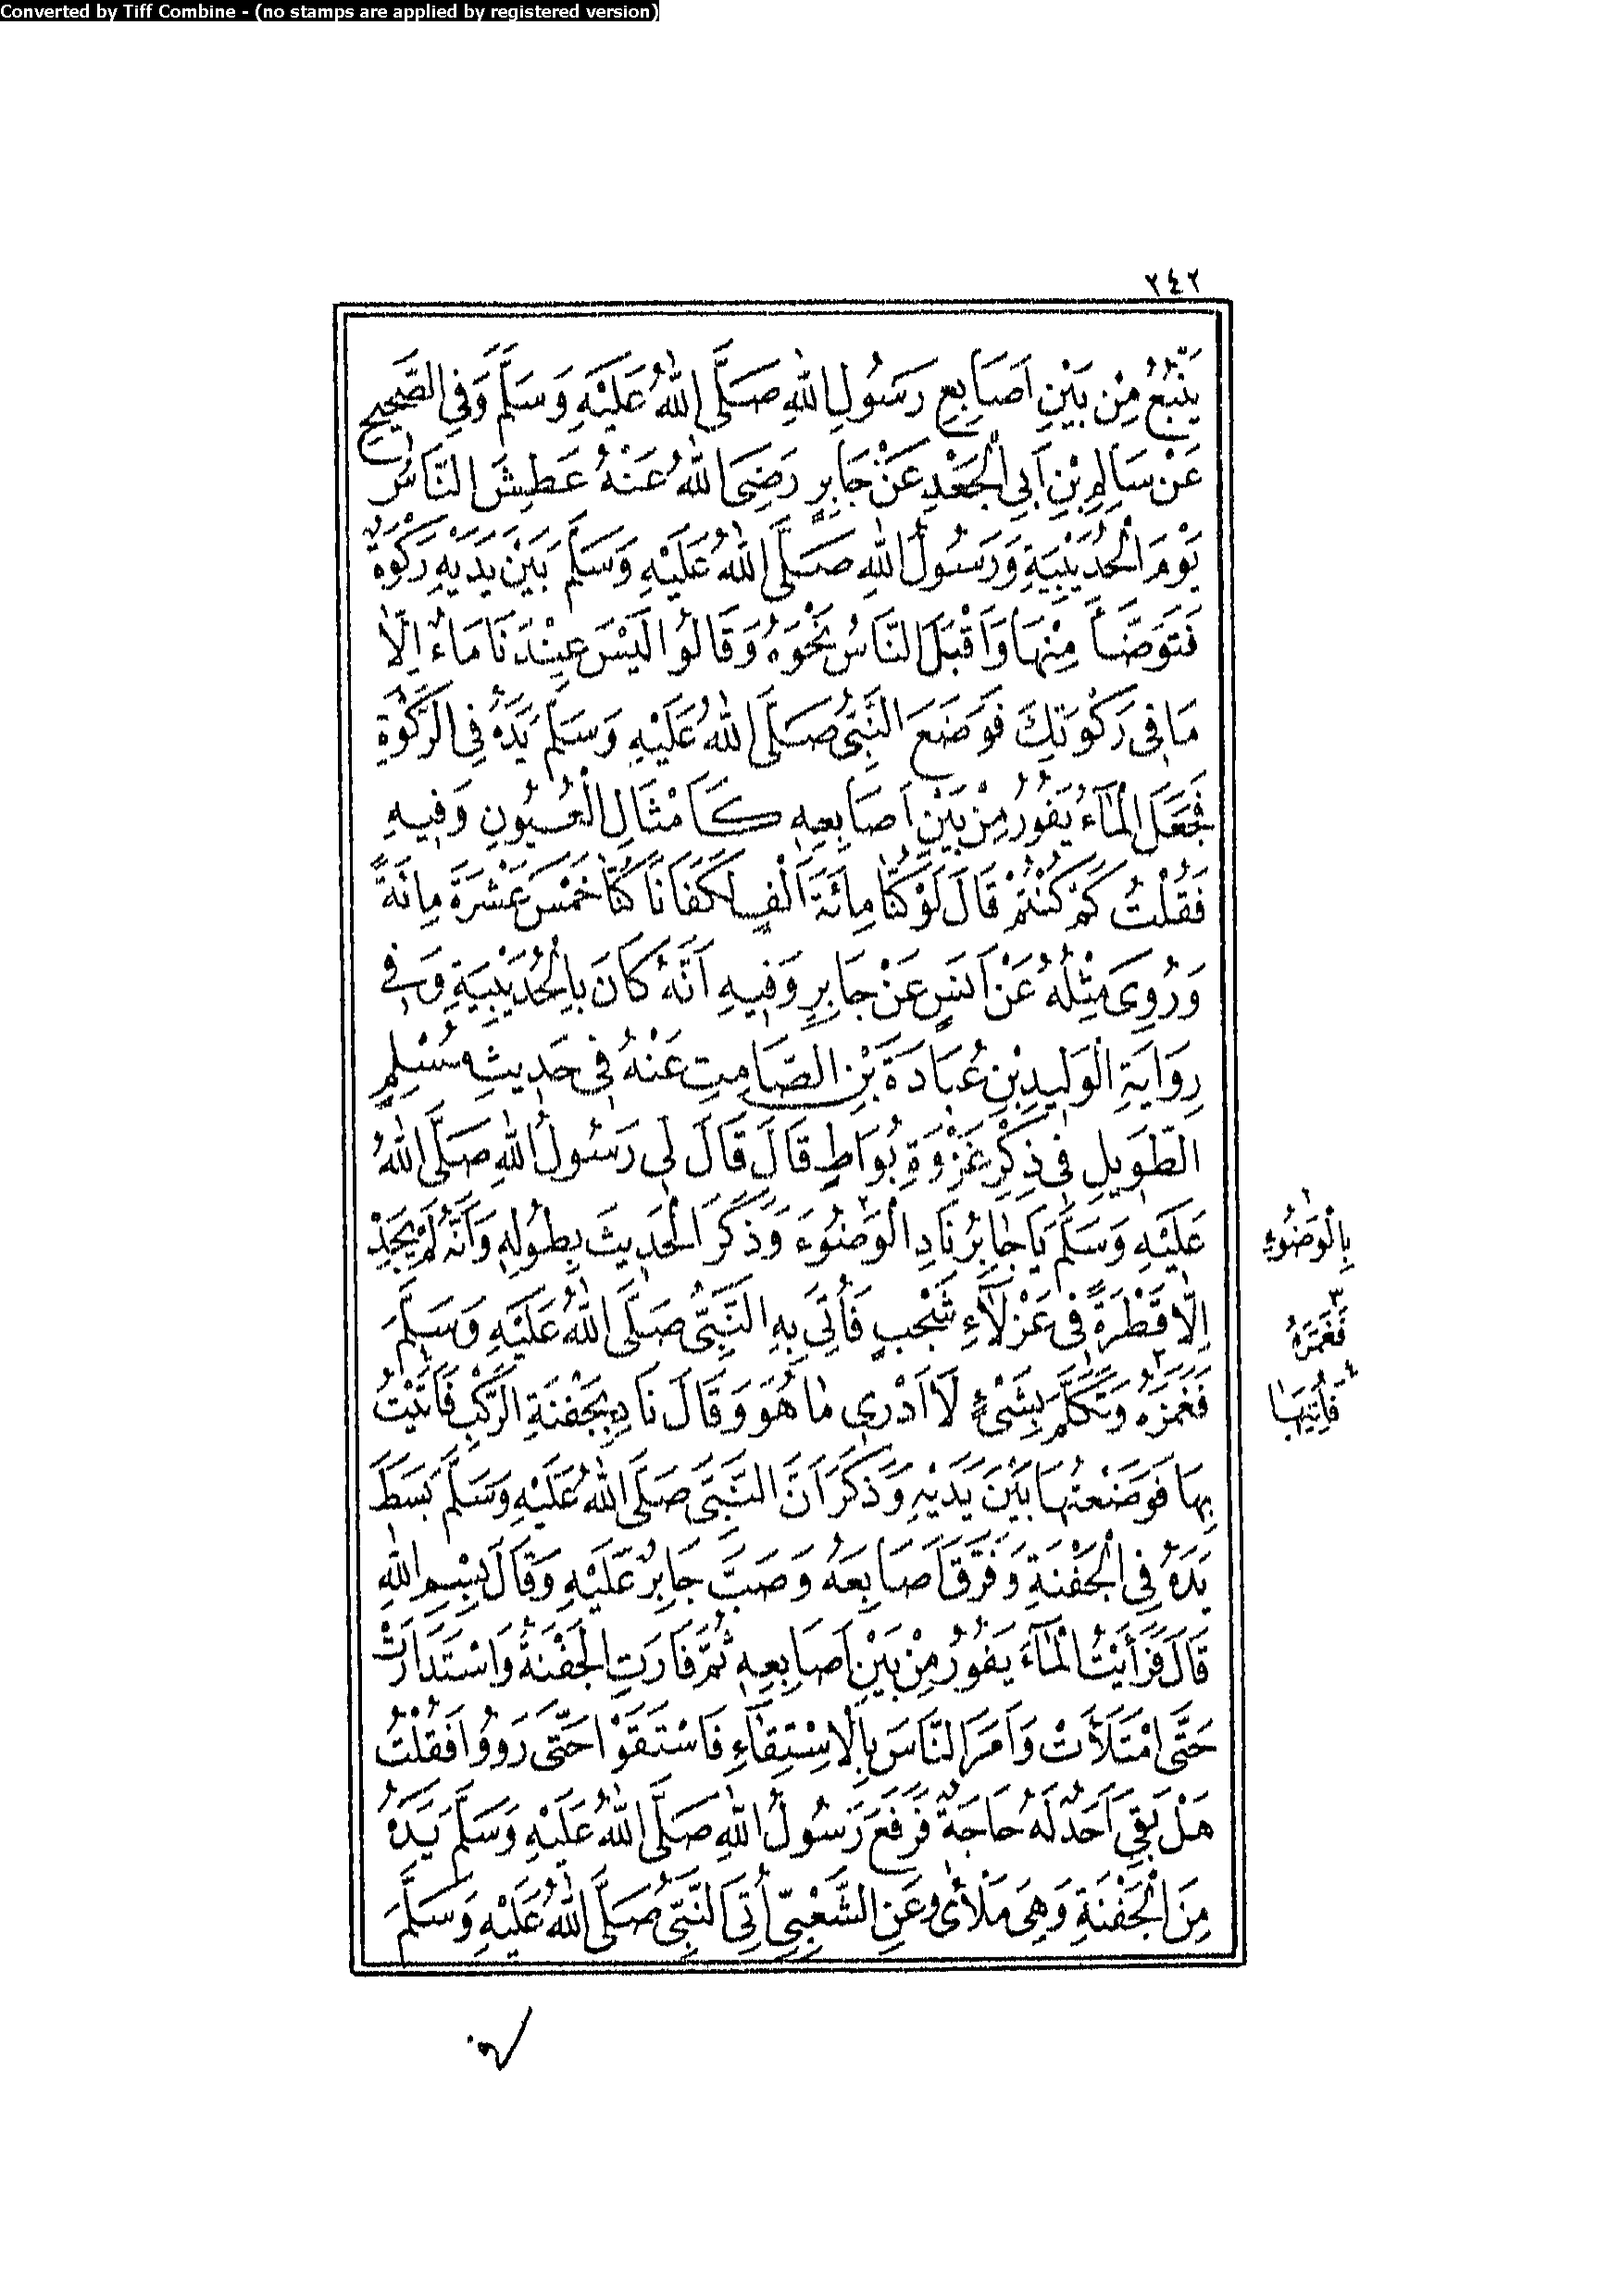 Converted by Tiff Combine - (no stamps are applied by registered version)
٢٤٢
يَنْبُعُ مِنْ بَيْنِ اَصَابِعِ رَسُولِ اللهِ صَلَّى اللهُ عَلَيْهِ وَسَلَّمَ وَفِى الصَّحِيحِ
عَنْ سَالِمِ بْنِ اَبِى الْجَعْدِ عَنْ جَابِرٍ رَضِىَ اللهُ عَنْهُ عَطِشَ النَّاسُ
يَوْمَ الْحُدَيْبِيَةِ وَرَسُولُ اللهِ صَلَّى اللهُ عَلَيْهِ وَسَلَّمَ بَيْنَ يَدَيْهِ رَكْوَةٌ
فَتَوَضَّأَ مِنْهَا وَاَقْبَلَ النَّاسُ نَحْوَهُ وَقَالُوا لَيْسَ عِنْدَنَا مَاءٌ اِلَّا
مَا فِى رَكْوَتِكَ فَوَضَعَ النَّبِىُّ صَلَّى اللهُ عَلَيْهِ وَسَلَّمَ يَدَهُ فِى الرَّكْوَةِ
فَجَعَلَ الْمَاءُ يَفُورُ مِنْ بَيْنِ اَصَابِعِهِ كَاَمْثَالِ الْعُيُونِ وَفِيهِ
فَقُلْتُ كَمْ كُنْتُمْ قَالَ لَوْ كُنَّا مِائَةَ اَلْفٍ لَكَفَانَا كُنَّا خَمْسَ عَشْرَةَ مِائَةً
وَرُوِىَ مِثْلُهُ عَنْ اَنَسٍ عَنْ جَابِرٍ وَفِيهِ اَنَّهُ كَانَ بِالْحُدَيْبِيَةِ وَفِى
رِوَايَةِ الْوَلِيدِ بْنِ عُبَادَةَ بْنِ الصَّامِتِ عَنْهُ فِى حَدِيثِ مُسْلِمٍ
الطَّوِيلِ فِى ذِكْرِ غَزْوَةِ بُوَاطٍ قَالَ قَالَ لِى رَسُولُ اللهِ صَلَّى اللهُ
عَلَيْهِ وَسَلَّمَ يَا جَابِرُ نَادِ الْوَضُوءَ وَذَكَرَ الْحَدِيثَ بِطُولِهِ وَاَنَّهُ لَمْ يَجِدْ
اِلَّا قَطْرَةً فِى عَزْلَاءِ شَجْبٍ فَأُتِىَ بِهِ النَّبِىُّ صَلَّى اللهُ عَلَيْهِ وَسَلَّمَ
فَغَمَزَهُ وَتَكَلَّمَ بِشَىْءٍ لَا اَدْرِى مَا هُوَ وَقَالَ نَادِ بِجَفْنَةِ الرَّكْبِ فَاَتَيْتُ
بِهَا فَوَضَعْتُهَا بَيْنَ يَدَيْهِ وَذَكَرَ اَنَّ النَّبِىَّ صَلَّى اللهُ عَلَيْهِ وَسَلَّمَ بَسَطَ
يَدَهُ فِى الْجَفْنَةِ وَفَرَّقَ اَصَابِعَهُ وَصَبَّ جَابِرٌ عَلَيْهِ وَقَالَ بِسْمِ اللهِ
قَالَ فَرَأَيْتُ الْمَاءَ يَفُورُ مِنْ بَيْنِ اَصَابِعِهِ ثُمَّ فَارَتِ الْجَفْنَةُ وَاسْتَدَارَتْ
حَتَّى امْتَلَأَتْ وَاَمَرَ النَّاسَ بِالْاِسْتِقَاءِ فَاسْتَقَوْا حَتَّى رَوُوا فَقُلْتُ
هَلْ بَقِىَ اَحَدٌ لَهُ حَاجَةٌ فَرَفَعَ رَسُولُ اللهِ صَلَّى اللهُ عَلَيْهِ وَسَلَّمَ يَدَهُ
مِنَ الْجَفْنَةِ وَهِىَ مَلْأَى وَعَنِ الشَّعْبِىِّ أُتِىَ النَّبِىُّ صَلَّى اللهُ عَلَيْهِ وَسَلَّمَ
١
بِالْوَضُوءِ
٣
فَغَمَرَهُ
٤
فَأُتِيَهَا